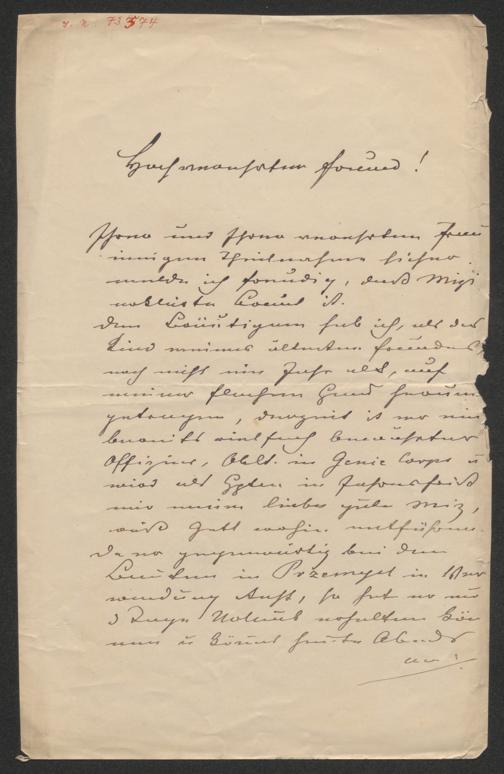 I. N. 73574
Hochverehrter Freund!
Ihrer und Ihrer verehrten Frau
innigen Theilnahme sicher
melde ich freudig, daß Mizi
erklärte Braut ist.
Den Bräutigam hab ich, als das
Kind meines ältesten Freundes,
noch nicht ein Jahr alt, auf
meiner flachen Hand herum
getragen, derzeit ist er ein
bereits vielfach bewährter
Offizier, Oblt. in Genie Corps u
wird als Hptm in Jahresfrist
mir meine liebe gute Miz,
weiß Gott wohin entführen.
Da er gegenwärtig bei den
Bauten in Przemysl in Ver
wendung steht, so hat er nur
3 Tage Urlaub erhalten kön
nen u kömt heute Abends
an.